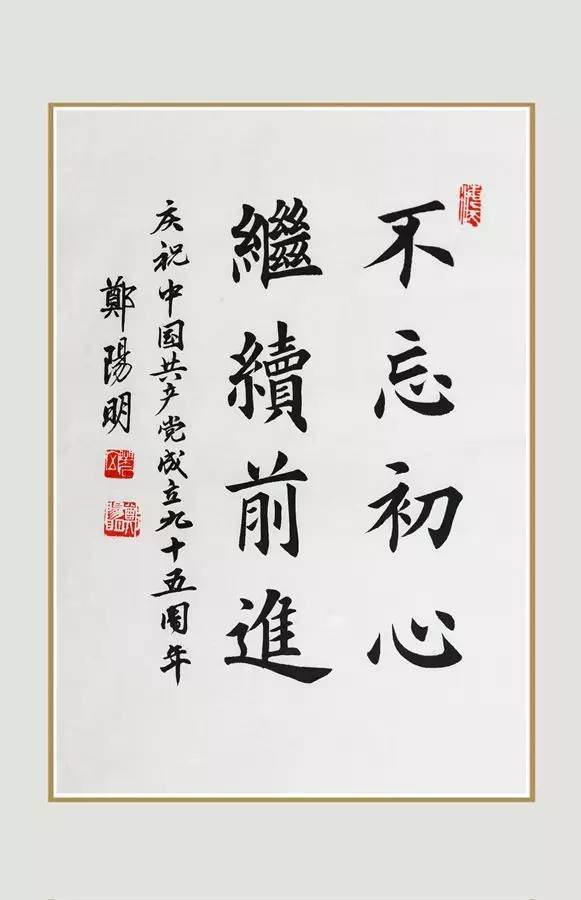 不忘初心
繼續前進
庆祝中国共产党成立九十五周年
鄭陽明